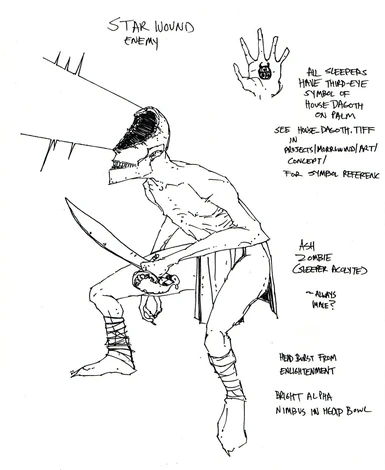 STAR WOUND
ENEMY
ALL SLEEPERS
HAVE THIRD-EYE
SYMBOL OF
HOUSE DAGOTH
ON PALM
SEE HOUSE.DAGOTH.TIFF
IN
PROJECTS/MORROWIND/ART/
CONCEPT/
FOR SYMBOL REFERENC
ASH
ZOMBIE
(SLEEPER ACOLYTE)
~ ALWAYS
MALE?
HEAD BURST FROM
ENLIGHTENMENT
BRIGHT ALPHA
NIMBUS IN HEAD BOWL